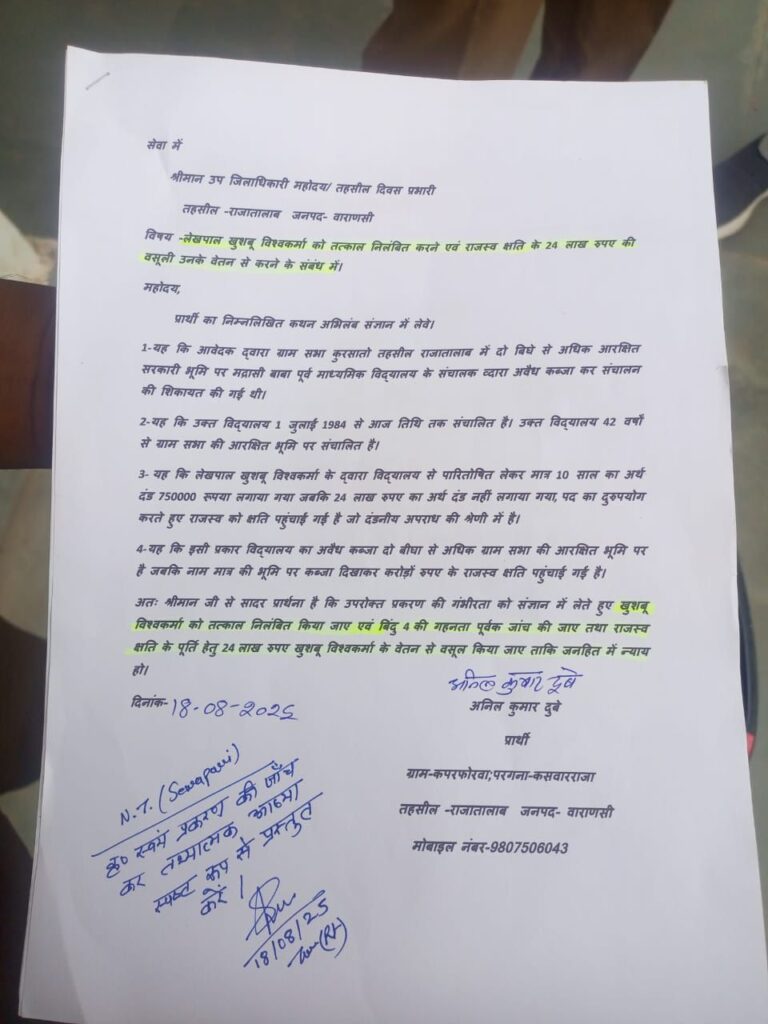 सेवा में
श्रीमान उप जिलाधिकारी महोदय/ तहसील दिवस प्रभारी
तहसील -राजातालाब जनपद- वाराणसी
विषय -लेखपाल खुशबू विश्वकर्मा को तत्काल निलंबित करने एवं राजस्व क्षति के 24 लाख रुपए की
वसूली उनके वेतन से करने के संबंध में।
महोदय,
प्रार्थी का निम्नलिखित कथन अभिलंब संज्ञान में लेवे।
1-यह कि आवेदक द्वारा ग्राम सभा कुरसातो तहसील राजातालाब में दो बिघे से अधिक आरक्षित
सरकारी भूमि पर मद्रासी बाबा पूर्व माध्यमिक विद्यालय के संचालक व्दारा अवैध कब्जा कर संचालन
की शिकायत की गई थी।
2-यह कि उक्त विद्यालय 1 जुलाई 1984 से आज तिथि तक संचालित है। उक्त विद्यालय 42 वर्षो
से ग्राम सभा की आरक्षित भूमि पर संचालित है।
3- यह कि लेखपाल खुशबू विश्वकर्मा के द्वारा विद्यालय से पारितोषित लेकर मात्र 10 साल का अर्थ
दंड 750000 रूपया लगाया गया जबकि 24 लाख रुपए का अर्थ दंड नहीं लगाया गया, पद का दुरुपयोग
करते हुए राजस्व को क्षति पहुंचाई गई है जो दंडनीय अपराध की श्रेणी में है।
4-यह कि इसी प्रकार विद्यालय का अवैध कब्जा दो बीघा से अधिक ग्राम सभा की आरक्षित भूमि पर
है जबकि नाम मात्र की भूमि पर कब्जा दिखाकर करोड़ों रुपए के राजस्व क्षति पहुंचाई गई है।
अतः श्रीमान जी से सादर प्रार्थना है कि उपरोक्त प्रकरण की गंभीरता को संज्ञान में लेते हुए खुशबू
विश्वकर्मा को तत्काल निलंबित किया जाए एवं बिंदु 4 की गहनता पूर्वक जांच की जाए तथा राजस्व
क्षति के पूर्ति हेतु 24 लाख रुपए खुशबू विश्वकर्मा के वेतन से वसूल किया जाए ताकि जनहित में न्याय
हो।
अनिल कुमार दूबे
दिनांक-18-08-202
अनिल कुमार दुबे
प्रार्थी
ग्राम-कपरफोरवा;परगना-कसवारराजा
तहसील -राजातालाब जनपद- वाराणसी
मोबाइल नंबर-9807506043
N.T. (Sewapuri)
कृ० स्वयं प्रकरण की जाँच
कर तथ्यात्मक आख्या
स्पष्ट रूप से प्रस्तुत
करें।
18/08/25